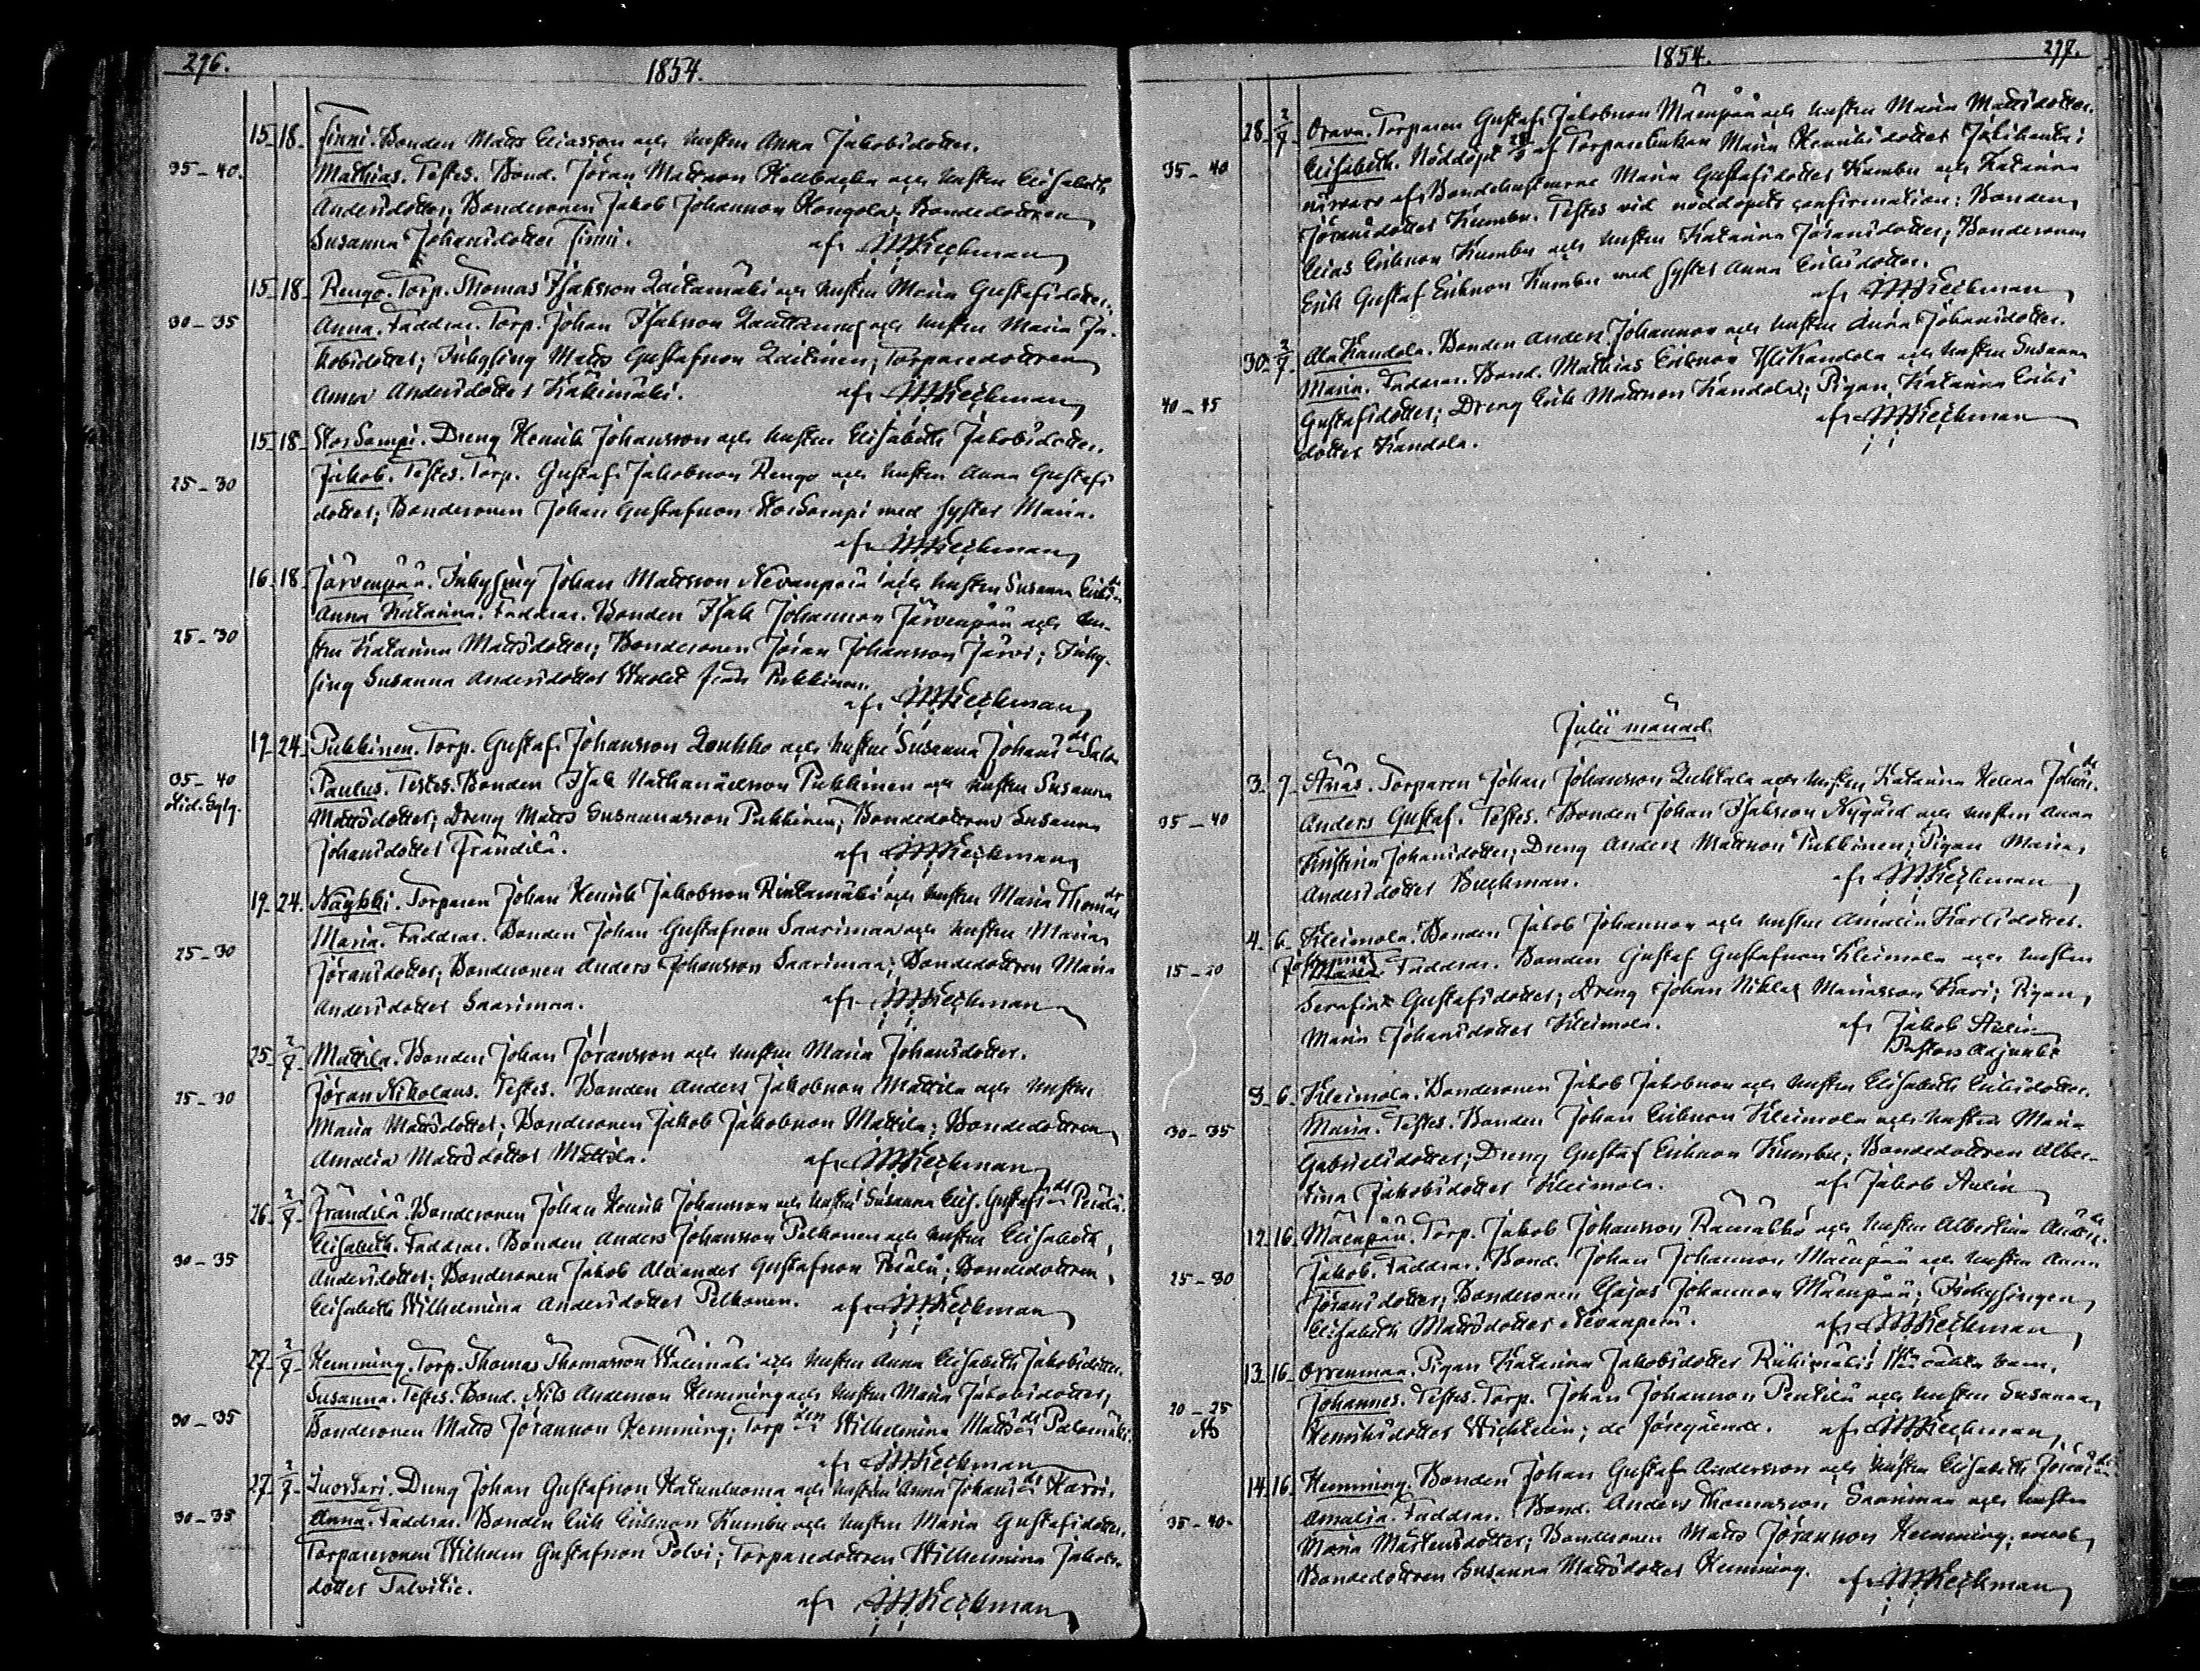 296.
1854.
15 18 Finni. Bonden Matts Eliasson och hustru Anna Jakobsdotter.
35-40. Mathias. Testes. Bond. Jöran Mattsson och hustru Elisabeth
Andersdotter; Bondesonen Jakob Johansson Bondedottren
Susanna Johansdotter Finni. af
15 18 Rengo. Torp. Thomas Isaksson Laitamäki och hustru Maria Gustafsdotter.
30-35 Anna. Faddrar. Torp. Johan Isaksson och hustru Maria Ja-
kobsdotter; Inhysing Matts Gustafsson Laitinen; Torparedottren
Anna Andersdotter Kakimäki. af
15 18 StorSompi. Dreng Henrik Johansson och hustru Elisabeth Jakobsdotter.
25-30 Jakob. Testes. Torp. Gustaf Jakobsson Rengo och hustru Anna Gustafs
dotter; Bondesonen Johan Gustafsson StorSompi med syster Maria.
af
16 18 Järvenpää. Inhysing Johan Mattsson Nevanperä och hustru Susanna
25-30 Anna Katarina. Faddrar. Bonden Isak Johansson Järvenpää och hu-
stru Katarina Mattsdotter; Bondesonen Jöran Johansson Järvi; Inhy-
sing Susanna Andersdotter från Pukkinen.
af
19 24 Pukkinen. Torp. Gustaf Johansson Loukko och hustru Susanna Johans dr
35-40 Paulus. Testes. Bonden Isak Nathanaelsson Pukkinen och hustru Susanna
Mattsdotter; Dreng Matts Susannasson Pukkinen; Bondedottren Susanna
Johansdotter Frändilä. af
19 24. Näykki. Torparen Johan Henrik Jakobsson Rintamäki och hustru Maria Thomas dr
25-30 Maria. Faddrar. Bonden Johan Gustafsson Saarimaa och hustru Maria
Jöransdotter; Bondesonen Anders Johansson Saarimaa; Bondedottren Maria
Andersdotter Saarimaa. af
25 2/7 Mattila. Bonden Johan Jöransson och hustru Maria Johansdotter.
25-30 Jöran Nikolaus. Testes. Bonden Anders Jakobsson Mattila och hustru
Maria Mattsdotter; Bondesonen Jakob Jakobsson Mattila; Bondedottren
Amalia Mattsdotter Mattila. af
26 2/7 Frändilä. Bondesonen Johan Henrik Johansson och hustru Susanna Elis. Gustafs dr Perälä.
30-35 Elisabeth. Faddrar. Bonden Anders Johansson Pelkonen och hustru Elisabeth
Andersdotter; Bondesonen Jakob Alexander Gustafsson Perälä; Bondedottren
Elisabeth Wilhelmina Andersdotter Pelkonen. af
27 2/7 Hemming. Torp. Thomas Thomasson Wälimäki och hustru Anna Elisabeth Jakobsdotter.
30-35 Susanna. Testes. Bond. Nils Andersson Hemming och hustru Maria Jakobsdotter;
Bondesonen Matts Jöransson Hemming; Torp. Wilhelmina Matts dr Palomäki.
af
27 2/7 Luosari. Dreng Johan Gustafsson Katunluoma och hustru Anna Johans dr Harri.
30-35 Anna. Faddrar. Bonden Erik Eriksson Kumbu och hustru Maria Gustafsdotter.
Torparesonen Wilhelm Gustafsson Polvi; Torparedottren Wilhelmina Jakobs
dotter Talvitie.
af
1854.
297.
28 2/7 Orava. Torparen Gustaf Jakobsson Mäenpää och hustru Maria Mattsdotter.
35-40 Elisabeth. Nöddöpt af Torpareenkan Maria Henriksdotter i
närvaro af Bondehustrurne Maria Gustafsdotter Kumbu och Katarina
Jöransdotter Kumbu. Testes vid nöddopets confirmation: Bonden
Elias Eriksson Kumbu och hustru Katarina Jöransdotter; Bondesonen
Erik Gustaf Eriksson Kumbu med syster Anna Eriksdotter.
af
30 2/7 AlaKandola. Bonden Anders Johansson och hustru Anna Johansdotter.
40-45 Maria. Faddrar. Bond. Mathias Eriksson YliKandola och hustru Susanna
Gustafsdotter; Dreng Erik Mattsson Kandola; Pigan Katarina Eriks
dotter Kandola. af
Julii månad.
3. 9 Äriäs. Torparen Johan Johansson Luhtala och hustru Katarina Helena Johans dr
35-40 Anders Gustaf. Testes. Bonden Johan Isaksson Nygård och hustru Anna
Kristina Johansdotter; Dreng Anders Mattsson Pukkinen; Pigan Maria
Andersdotter Beckman. af
4 6 Kleimola. Bonden Jakob Johansson och hustru Amalia Karlsdotter.
15-20 Johanna Maria. Faddrar. Bonden Gustaf Gustafsson Kleimola och hustru
Serafia Gustafsdotter; Dreng Johan Niklas Mariasson Kari; Pigan
Maria Johansdotter Kleimola. af Jakob Aulin
Pastors Adjunkt
3 6 Kleimola. Bondesonen Jakob Jakobsson och hustru Elisabeth Eriksdotter.
30-35 Maria. Testes. Bonden Johan Eriksson Kleimola och hustru Maria
Gabrielsdotter; Dreng Gustaf Eriksson Kumbu; Bondedottren Alber-
tina Jakobsdotter Kleimola. af Jakob Aulin
12 16 Mäenpää. Torp. Jakob Johansson Rämäkkö och hustru Albertina Anders dr
25-30 Jakob. Faddrar. Bond. Johan Johansson Mäenpää och hustru Anna
Jöransdotter; Bondesonen Gajus Johansson Mäenpää; Inhysingen
Elisabeth Mattsdotter Nevanperä. af
13 16 Orrenmaa. Pigan Katarina Jakobsdotter Riihimäkis oäkta barn.
20-25 Johannes. Testes. Torp. Johan Johansson Pentilä och hustru Susanna
Henriksdotter Wichtelin; de föregående. af
14 16 Hemming. Bonden Johan Gustaf Andersson och hustru Elisabeth Jörans dr
35-40 Amalia. Faddrar. Bond. Anders Thomasson Saarimaa och hustru
Maria Mårtensdotter; Bondesonen Matts Jöransson Hemming; samt
Bondedottren Susanna Mattsdotter Hemming. af